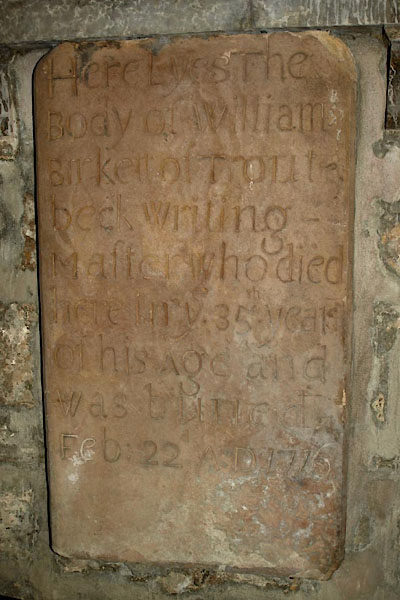 Here Lyes The
Body of William
Birkett of Trout-
beck writing -
Master who died
here in yͤ. 35th. year
of his Age and
was buried
Feb: 22 A D 1716